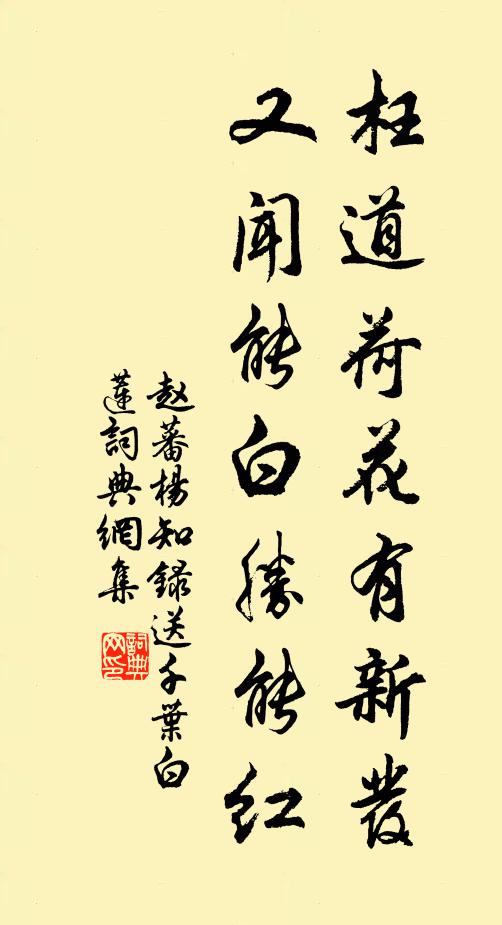 枉道荷花有新發
又闻能白勝能红
赵蕃楊知録送千葉白
蓮詞典網集
詞典
网印